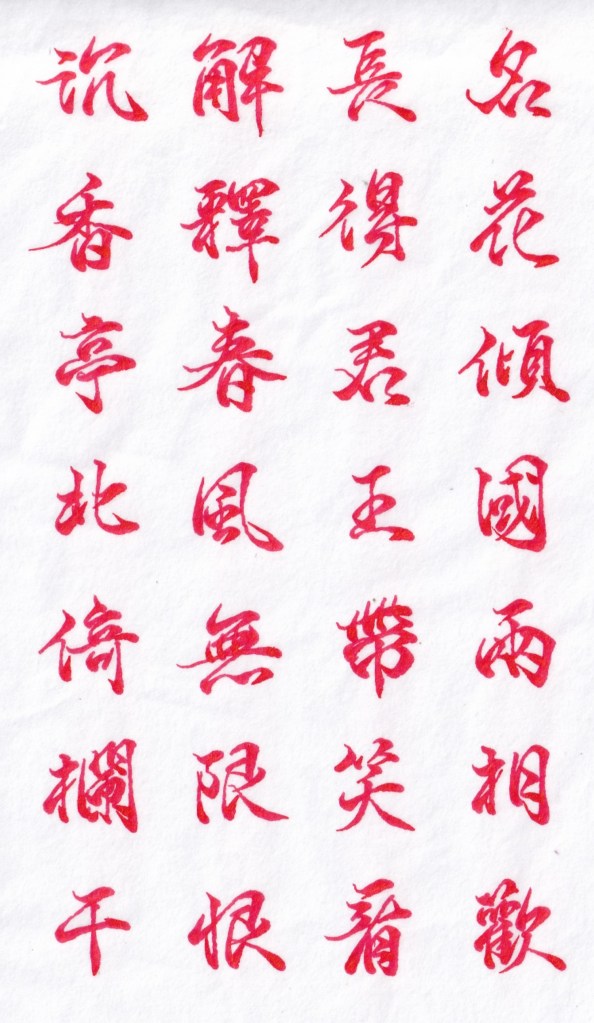 名花傾國兩相歡
長得君王帶笑看
解釋春風無限恨
沉香亭北倚欄干